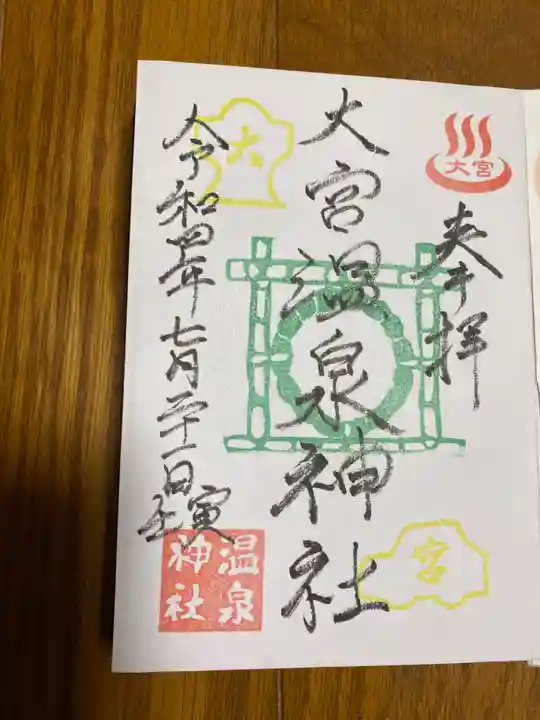 大宮
奉拝
大宮温泉神社
大
宮
令和四年七月二十一日
壬寅
温泉
神社